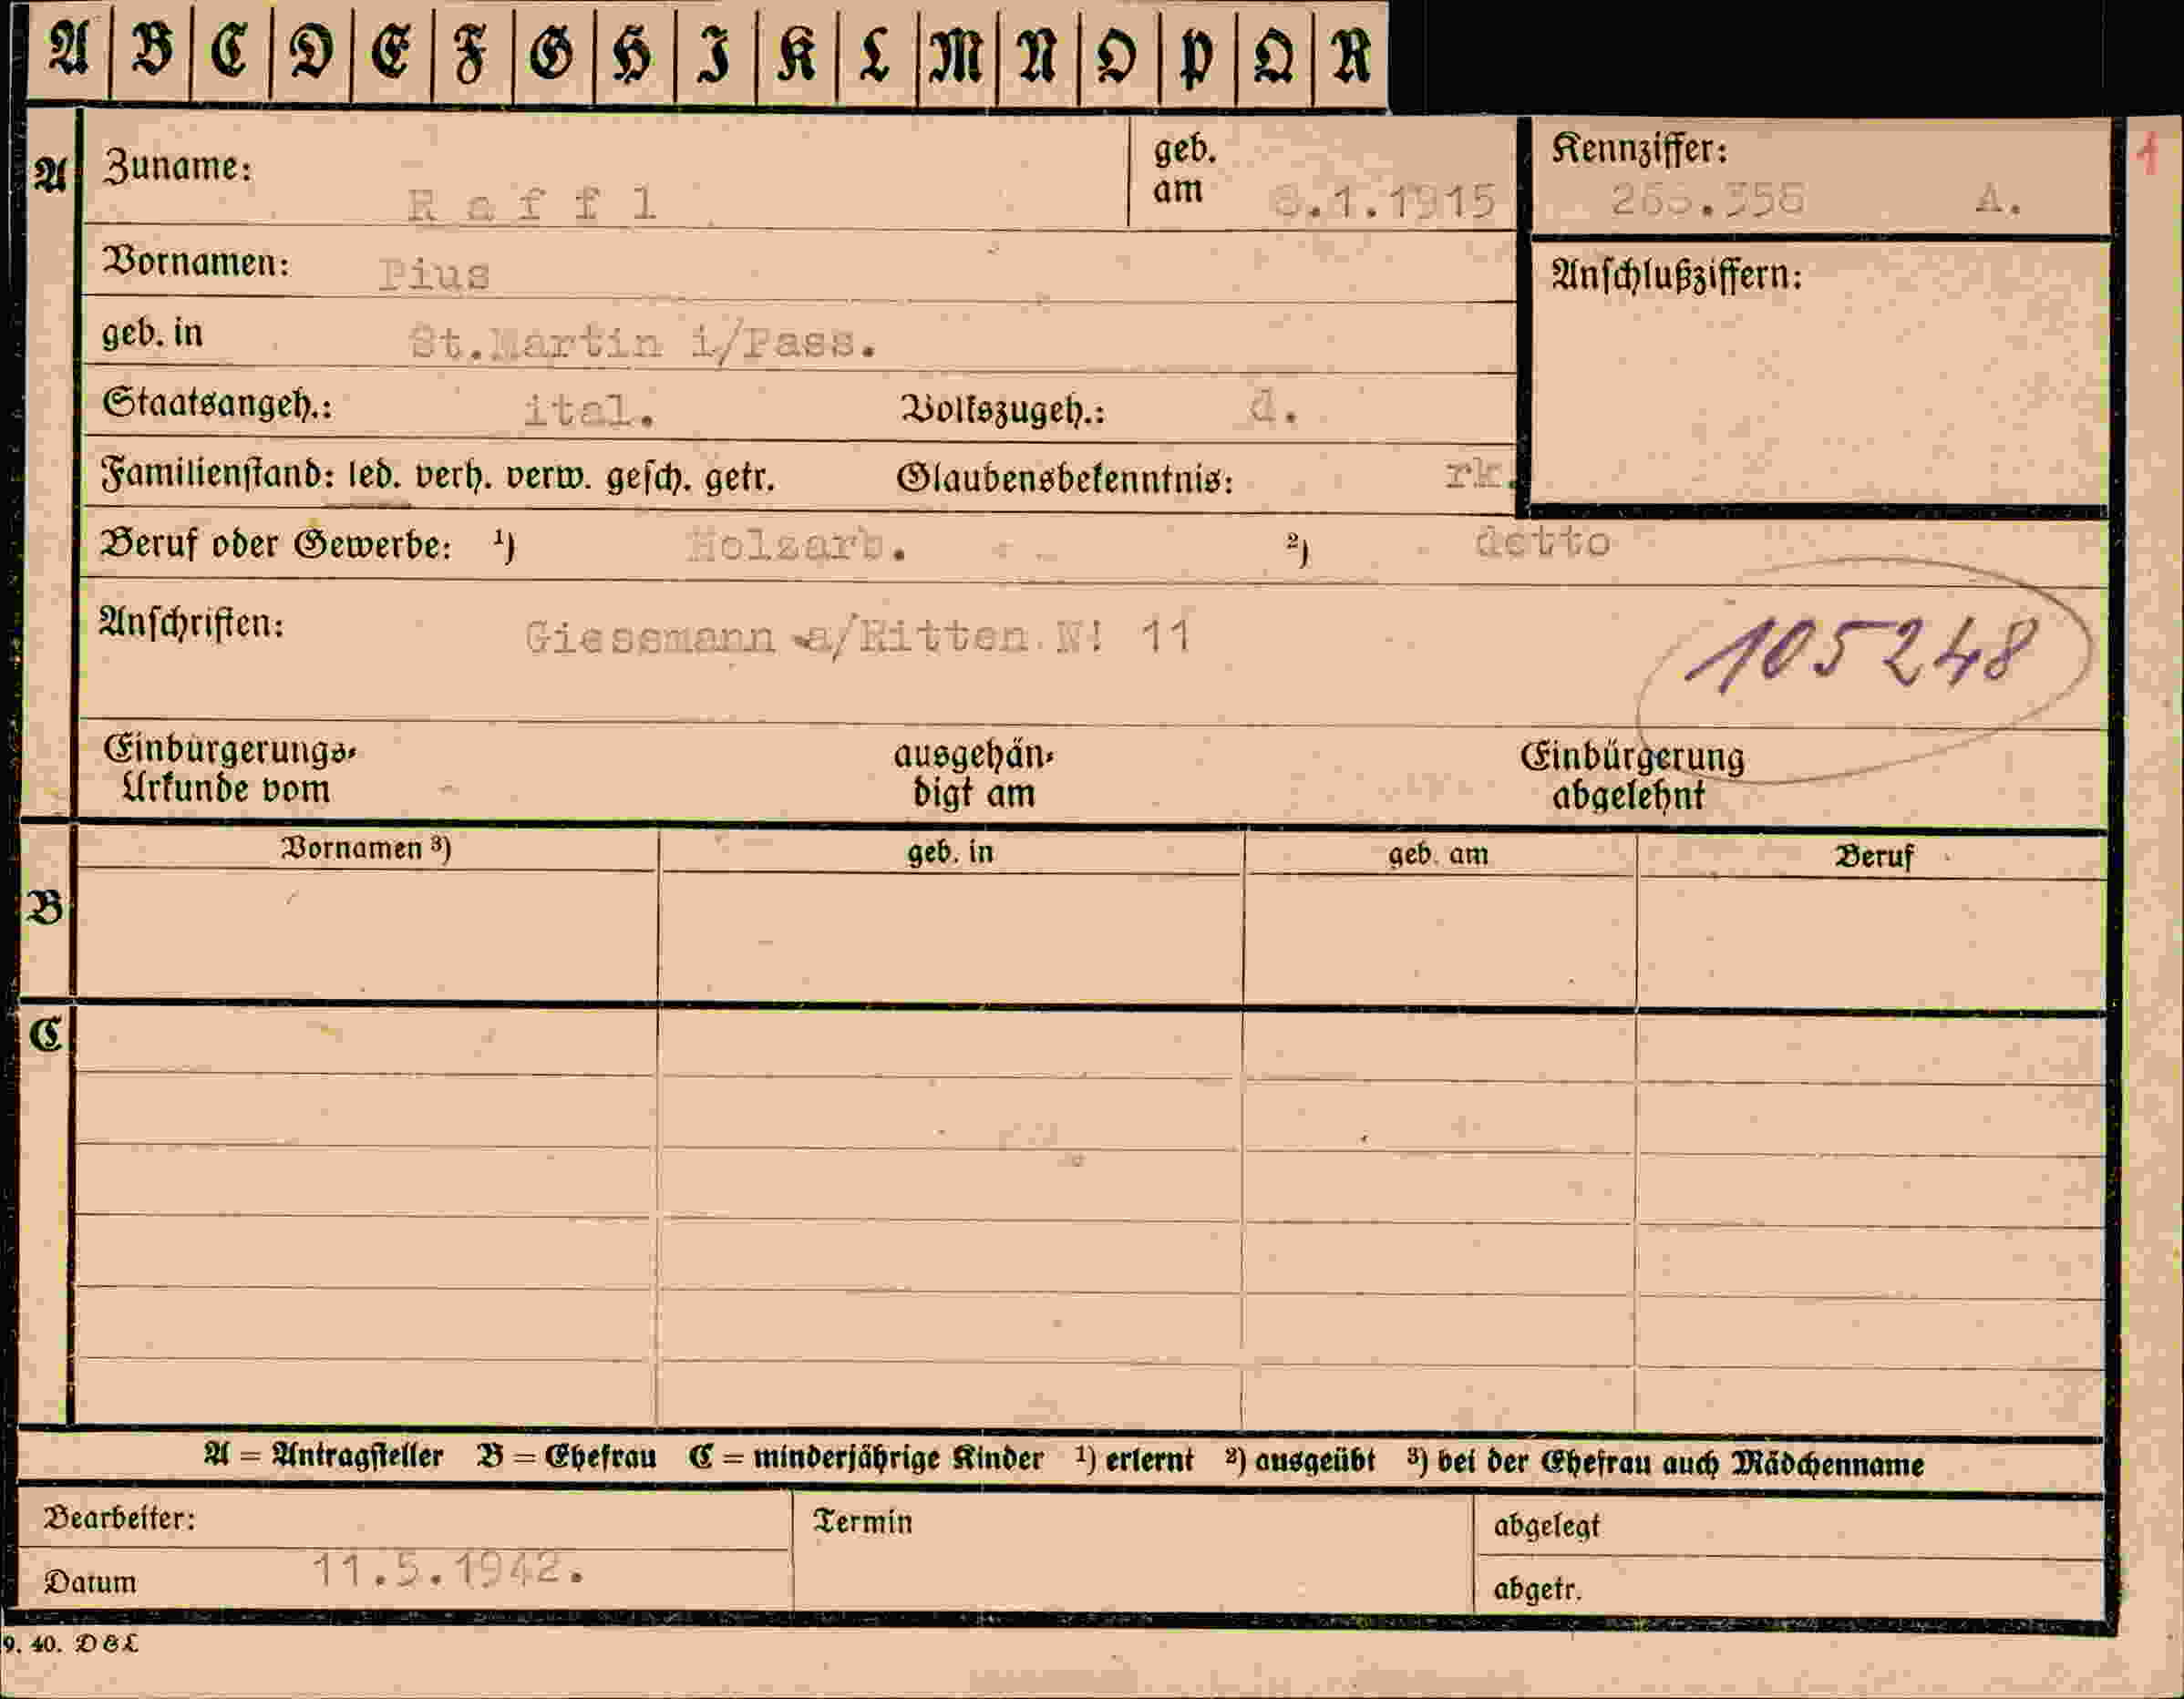 A B C D E F G H I K L M N O P Q R
A Zuname: Raffl geb. am 6.1.1915 Kennziffer: A. 1
Vornamen: Pius Anschlußziffern:
geb. in St.Martin i/Pass.
Staatsangeh.: ital. Volkszugeh.: d.
Familienstand: led. verh. verw. gesch. getr. Glaubensbekenntnis: rk.
Beruf oder Gewerbe: 1) Holzarb. 2) detto
Anschriften: Giessmann a/Ritten N! 11 105248
Einbürgerungs- ausgehän- Einbürgerung
Urkunde vom digt am abgelehnt
Vornamen 3) geb. in geb. am Beruf
B
C
A = Antragsteller B = Ehefrau C = minderjährige Kinder 1) erlernt 2) ausgeübt 3) bei der Ehefrau auch Mädchenname
Bearbeiter: Termin abgelegt
Datum 11.5.1942. abgetr.
9. 40. D&L